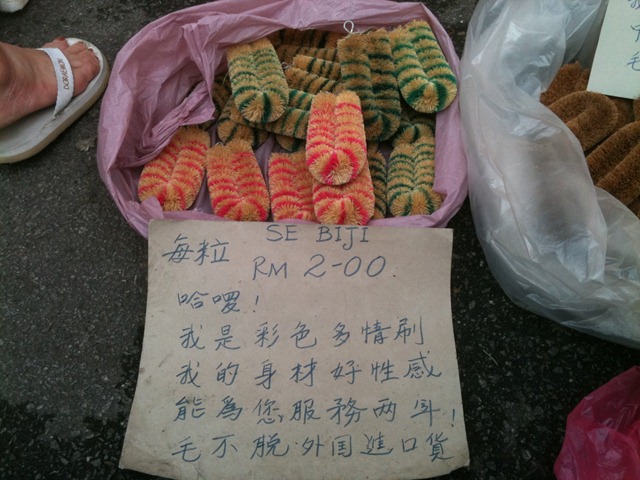 每粒 SE BIJI
RM 2-00.
哈嘤!
我是彩色多情刷
我的身材好性感
能為您服務两年!
毛不脫·外国進口貨